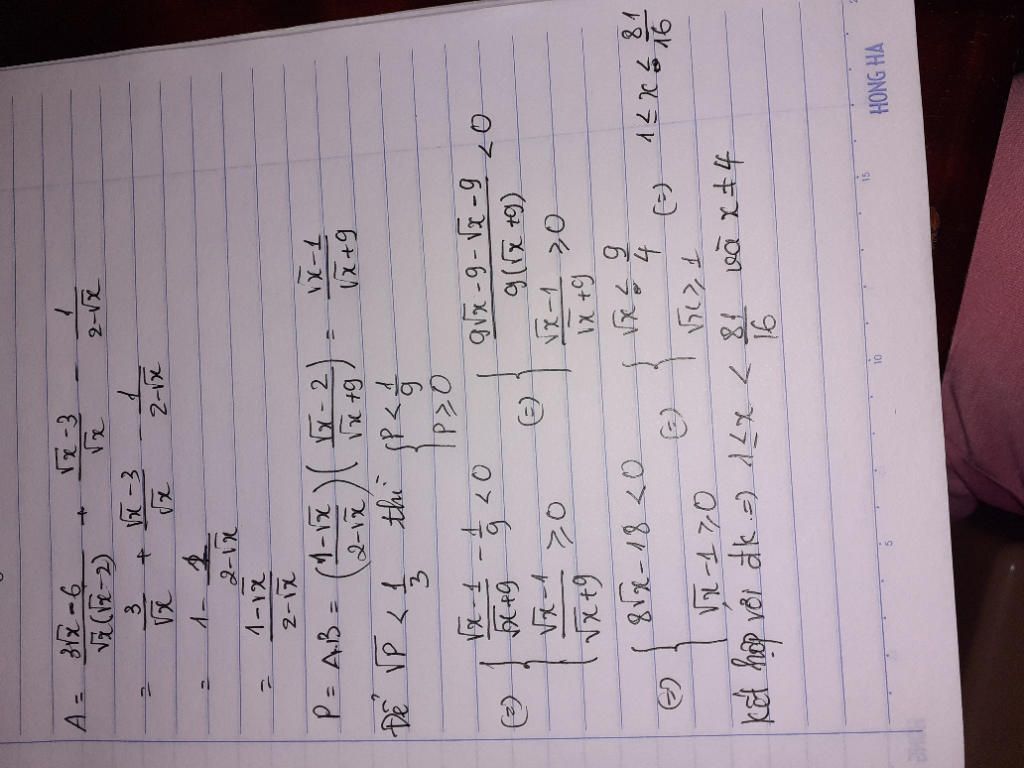 A = (3√x - 6)/(√x(√x - 2)) + (√x - 3)/√x - 1/(2-√x)
= 3/√x + (√x - 3)/√x - 1/(2-√x)
= 1 - 1/(2-√x)
= (1-√x)/(2-√x)
P = A.B = ((1-√x)/(2-√x)) ((√x - 2)/(√x + 9)) = (√x - 1)/(√x + 9)
Để √P < 1/3 thì { P < 1/9
P ≥ 0
(=) { (√x - 1)/(√x+9) - 1/9 < 0 (=) { (9√x - 9 - √x - 9)/(9(√x + 9)) < 0
(√x - 1)/(√x + 9) ≥ 0 (√x - 1)/(√x + 9) ≥ 0
(=) { 8√x - 18 < 0 (=) { √x < 9/4 (=) 1 ≤ x < 81/16
√x - 1 ≥ 0 √x ≥ 1
kết hợp với đk =) 1 ≤ x < 81/16 và x ≠ 4
HONG HA
5 10 15